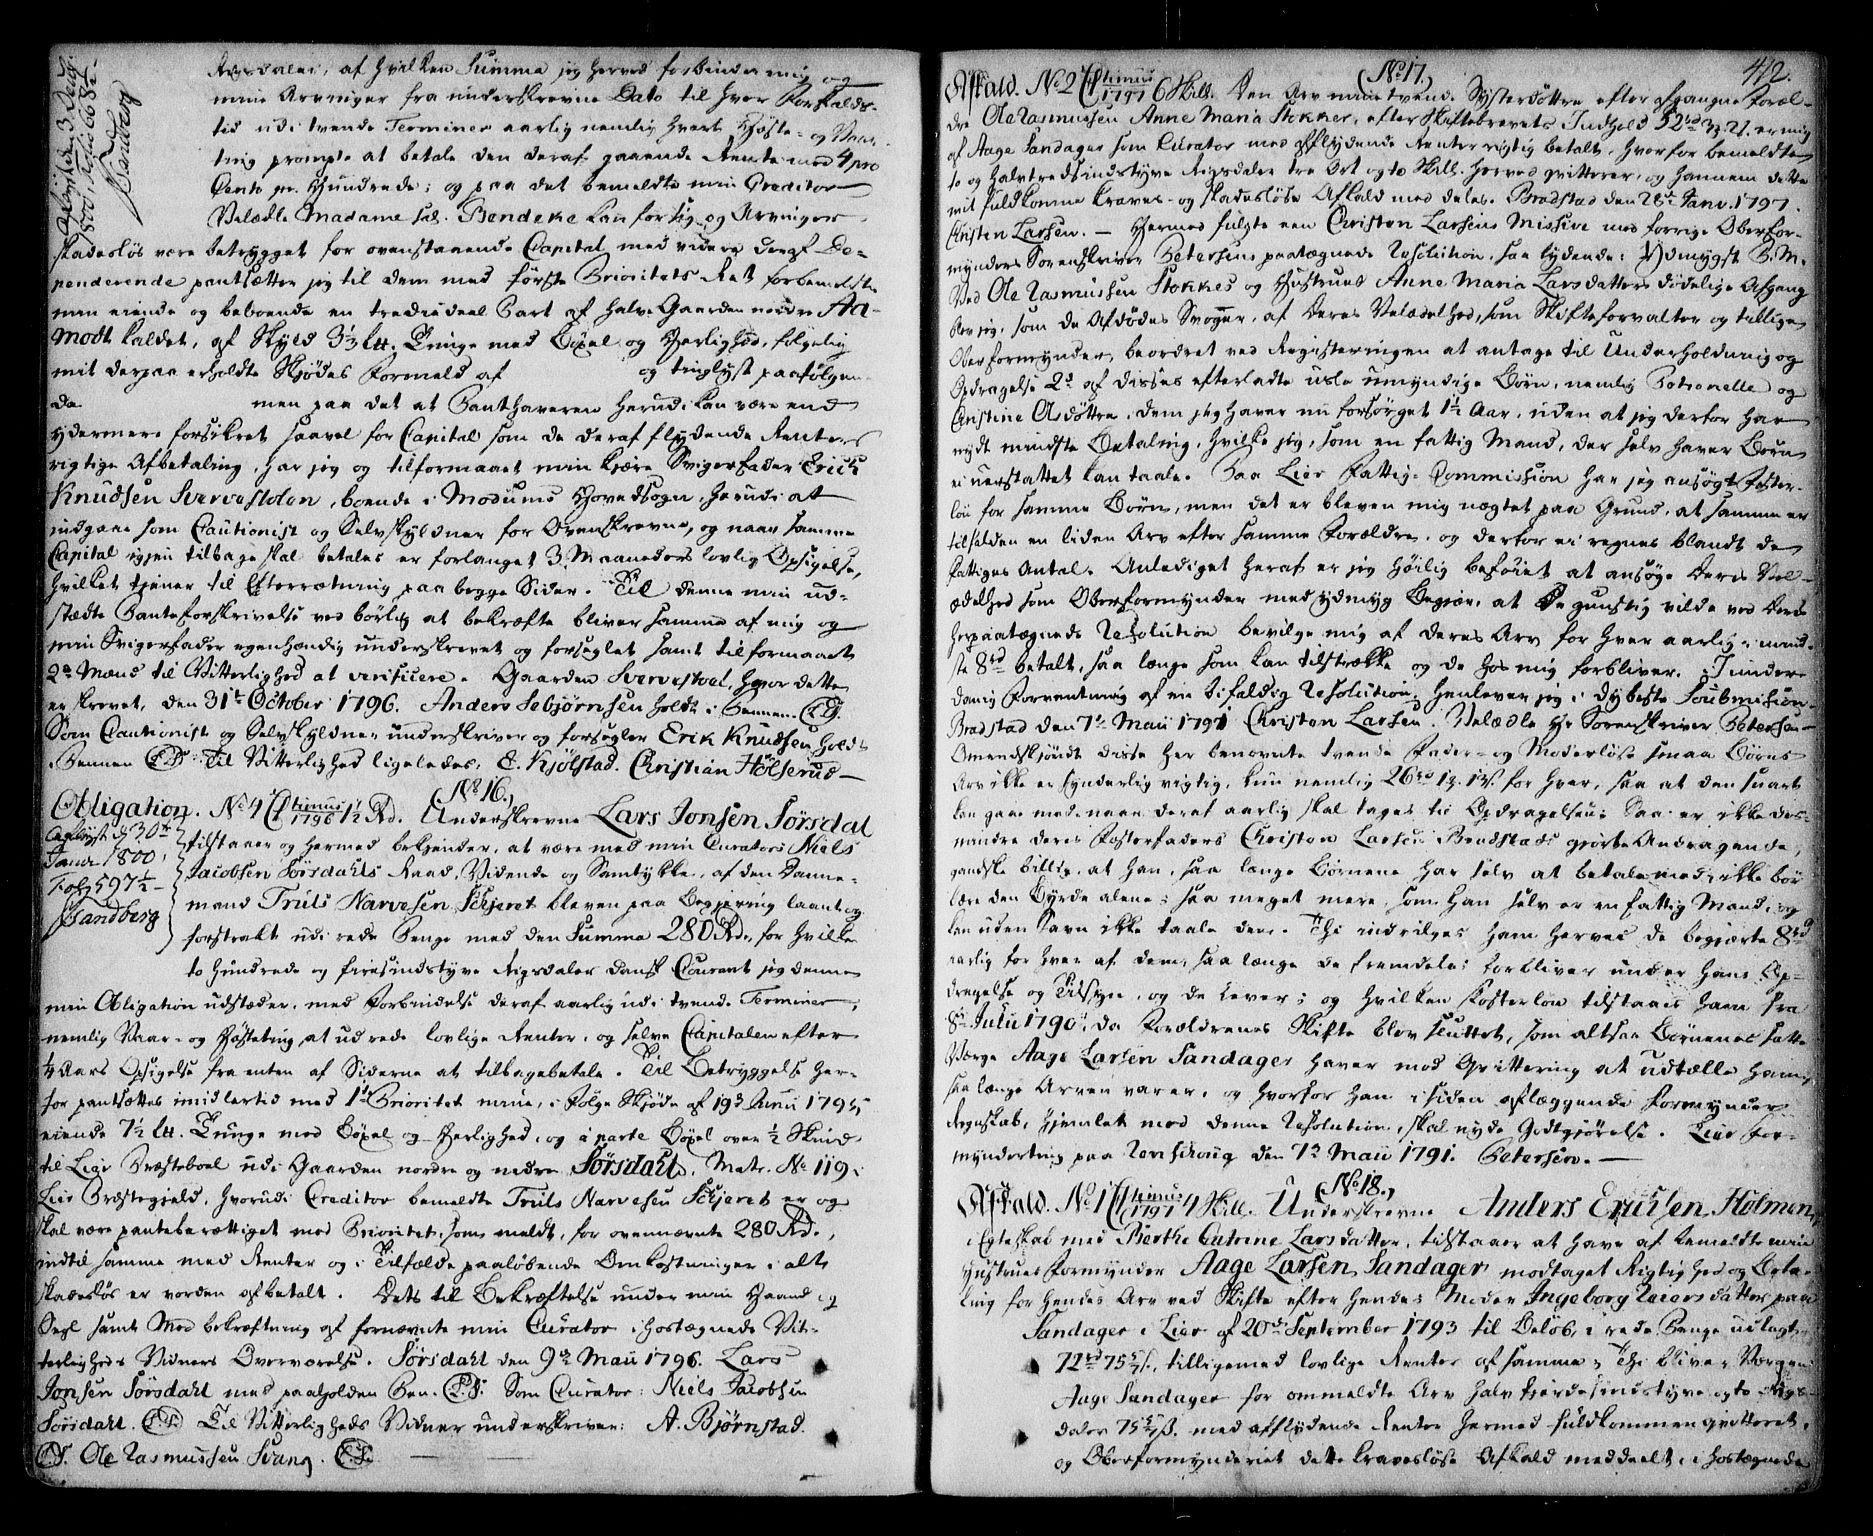 Aflyst d. 3 Decbr.
1800, Folio 668
Sandberg
Rigsdaler, af hvilken Summa jeg herved forbinder mig og
mine Arvinger fra underskrevne Dato til hver Forfalds-
tid udi tvende Terminer aarlig nemlig hvert Høste- og Vaar-
ting prompte at betale den deraf gaaende Rente med 4 pro
Cento pr. Hundrede; og paa det bemeldte min Creditor
Velædle Madame sal. Bendeke kan for sig og Arvinger
skadesløs være betrygget for ovenstaaende Capital med videre deraf De-
penderende pantsætter jeg til dem med første Prioritets Ret forbemeldte
min eiende og beboende en trediedeel Part af halve Gaarden nedre Aa-
modt kaldet, af Skyld 3⅓ L℔. Tunge med Bøxel og Herlighed, følgelig
mit derpaa erholdte Skjødes Formeld af og tinglyst paafølgen-
de men paa det at Panthaveren herudi kan være end
ydermere forsikret saavel for Capital som de deraf flydende Renters
rigtige Afbetaling, har jeg og tilformaaet min kjære Svigerfader Erich
Knudsen Servestolen, boende i Modums Hovedsogn, herudi at
indgaae som Cautionist og Selvskyldner for Ovenskrevne, og naar samme
Capital igjen tilbage skal betales er forlanget 3 Maaneders lovlig Opsigelse,
hvilket tjener til Efterretning paa begge Sider. Til denne min ud-
stædte Panteforskrivelse ved børlig at bekræfte bliver samme af mig og
min Svigerfader egenhændig underskrevet og forseglet samt tilformaaet
2de Mænd til Vitterlighed at verificere. Gaarden Servestoel, hvor dette
er skrevet, den 31te October 1796. Anders Sebjørnsen holdt i Pennen. (L.S.)
Som Cautionist og Selvskyldner underskriver og forsegler Erik Knudsen holdt
i Pennen (L.S.) Til Vitterlighed ligeledes, E. Kjølstad. Christian Hölserud
(No 16.)
Obligation. No 4 Ctimus 1796 1½ Rd. Underskrevne Lars Jonsen Sørsdal
Aflyst d. 30te
Janr. 1800,
Fol. 597½
Sandberg
tilstaaer og hermed bekjender, at være med min Curators Niels
Jacobsen Sørsdahls Raad, Vidende og Samtykke, af den Danne-
mand Truls Narvesen Skjeret bleven paa Begjering laant og
forstrakt udi rede Penge med den Summa 280 Rd., for hvilke
to hundrede og firesindstyve Rigsdaler dansk Courant jeg denne
min Obligation udstæder, med Forbindelse deraf aarlig udi tvende Terminer,
nemlig Vaar- og Høsteting at udrede lovlige Renter, og selve Capitalen efter
¼ Aars Opsigelse fra enten af Siderne at tilbagebetale. Til Betryggelse her-
for pantsættes imidlertid med 1te Prioritet min, i Følge Skjøde af 19de Junii 1795
eiende 7½ L℔. Tunge med Bøxel og Herlighed, og á parte Bøxel over ½ Skind
til Lier Præsteboel udi Gaarden nordre og nedre Sørsdahl, Matr. No 119 i
Lier Præstegjeld, hvorudi Creditor bemeldte Truls Narvesen Skjeret er og
skal være panteberættiget med Prioritet, som meldt, for ovennævnte 280 Rd.,
indtil samme med Renter og i Tilfælde paaløbende Omkostninger i alt
skadesløs er vorden afbetalt. Dets til Bekræftelse under min Haand og
Segl samt Med bekræftning af fornævnte min Curator i hostegnede Vit-
terligheds Vidners Overværelse. Sørsdahl den 9de Maii 1796. Lars
Jonsen Sørsdahl med paaholden Pen. (L.S.) Som Curator: Niels Jacobsen
Sørsdahl. (L.S.) Til Vitterligheds Vidner underskriver: A. Bjørnstad.
(L.S.) Ole Rasmussen Svang. (L.S.)
412.
(No 17)
Afkald. No 2 Ctimus 1797 6 Skill. Den Arv mine tvende Systerdøttre efter afgangne Foræl-
dre Ole Rasmussen Anne Maria Stokker, efter Skiftebrevets Indhold 52 rd 3 ₰ 21, er mig
af Aage Sandager som Curator med afflydende Renter rigtig betalt, hvorfor bemeldte
to og halvtredsindstyve Rigsdaler tre Ort og to Skill. herved qvitterer, og hannem dette
mit fuldkomne kraves- og skadesløse Afkald med deles. Bradstad den 28de Janv. 1797.
Christen Larsen. — Hermed fulgte een Christen Larsens Missive med forrige Oberfor-
mynders Sorenskriver Petersens paategnede Resolution, saa lydende: Ydmygst P. M.
Ved Ole Rasmussen Stokkes og Hustrues Anne Maria Larsdatters dødelige Afgang
blev jeg, som de Afdødes Svoger, af Deres Velædelhed, som Skifteforvalter og tillige
Oberformynder, beordret ved Registeringen at antage til Underholdning og
Opdragelse 2de af disses efterladte usle umyndige Børn, nemlig Petronelle og
Christine Olsdøttre. Dem jeg haver nu forsørget 1½ Aar, uden at jeg derfor har
nydt mindste Betaling, hvilke jeg, som en fattig Mand, der selv haver Børn
ei uerstattet kan taale. Paa Lier Fattig-Commission har jeg ansøgt Foster-
løn for samme Børn, men det er bleven mig nægtet paa Grund, at samme er
tilfalden en liden Arv efter samme Forældre, og derfor ei regnes blandt de
fattiges Antal. Anlediget heraf er jeg høilig beføiet at ansøge Deres Vel-
ædelhed som Oberformynder med ydmyg Begjær, at De gunstig vilde ved Deres
herpaategnede Resolution bevilge mig af deres Arv for hver aarlig i mind-
ste 8 rd betalt, saa længe som kan tilstrække og de hos mig forbliver. I under-
danig Forventning af en bifaldig Resolution, henlever jeg i dybeste Soubmission.
Bradstad den 7de Maii 1791 Christen Larsen. Velædle Hr Sorenskriver Petersen
Omendskjøndt disse her benævnte tvende Fader- og Moderløse smaa Børns
Arv ikke er synderlig vigtig, kun nemlig 26 rd 1 ₰. 1½ s. for hver, saa at den snart
kan gaae med, naar deraf aarlig skal tages til Opdragelsen: Saa er ikke des-
mindre deres Fosterfaders Christen Larsen Bradstads gjorte Andragende,
gandske billig, at han, saa længe Børnene har selv at betale med, ikke bør
lære den Byrde alene; saa meget mere, som han selv er en fattig Mand, og
kan uden Savn ikke taale den. Thi indvilges ham herved de begjerte 8 rd
aarlig for hver af dem, saa længe de fremdeles forbliver under hans Op-
dragelse og Tilsyn, og de lever; og hvilken Fosterløn tilstaaes ham fra
8de Julii 1790, da Forældrenes Skifte blev sluttet, som altsaa Børnenes satte
Værge Aage Larsen Sandager haver mod Qvittering at udtælle ham,
saa længe Arven varer, og hvorfor han i siden aflæggende Formynder
Regnskab, hjemlet med denne Resolution, skal nyde Godtgjørelse. Lier For-
mynderting paa Renskoug den 7de Maii 1791. Petersen. —
(No 18.)
Afkald. No 1 Ctimus 1797 4 Skill. Underskrevne Anders Erichsen Holmen,
i Egteskab med Berthe Catrine Larsdatter, tilstaaer at have af bemeldte min
Hustrues Formynder Aage Larsen Sandager modtaget Rigtighed og Beta-
ling for hendes Arv ved Skifte efter hendes Moder Ingeborg Reiersdatter paa
Sandager i Lier af 20de September 1793 til Beløb, i rede Penge udlagt
72 rd 75 s., tilligemed lovlige Renter af samme; Thi bliver Værgen
Aage Sandager for ommeldte Arv halvfjerdesindstyve og to Rigs-
daler 75 ß. med afflydende Renter hermed fuldkommen qvitteret,
og Oberformynderiet dette kravesløse Afkald meddeelt, i hostegnede